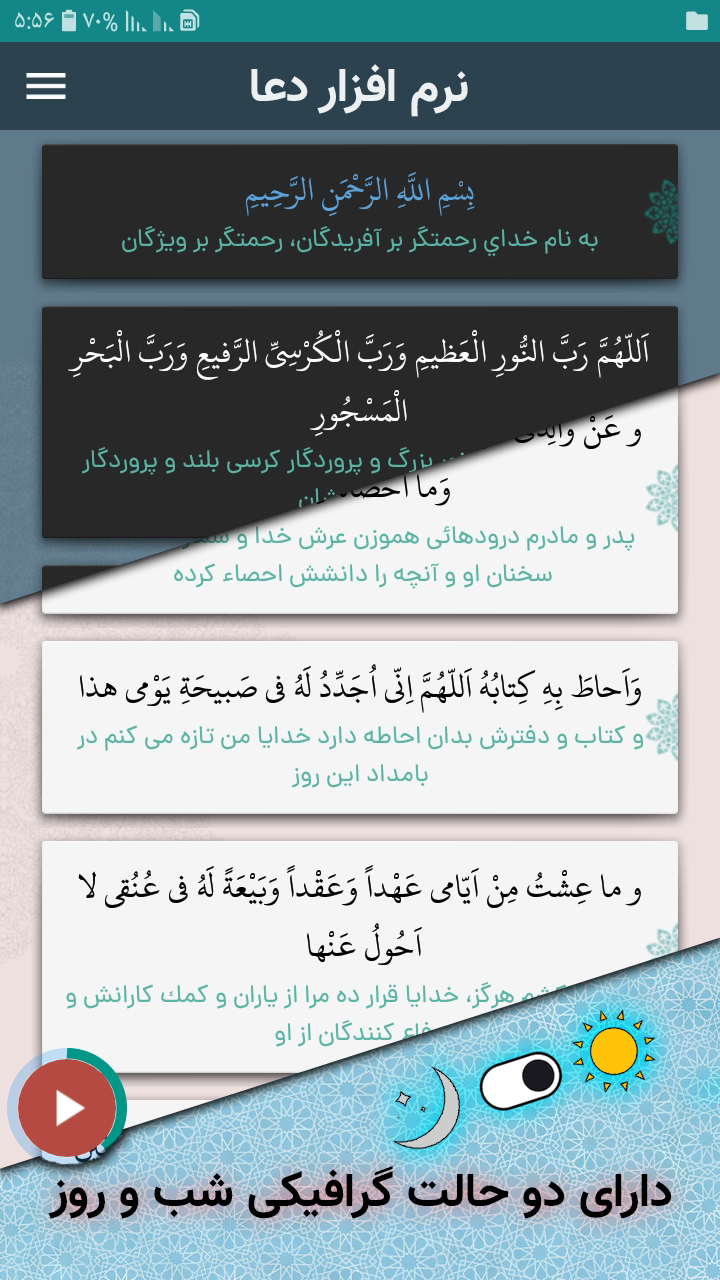 ۵:۵۶ ۷۰%
نرم افزار دعا
بِسْمِ اللَّهِ الرَّحْمَنِ الرَّحِيمِ
به نام خداي رحمتگر بر آفريدگان، رحمتگر بر ويژگان
اَللّهُمَّ رَبَّ النُّورِ الْعَظيمِ وَرَبَّ الْكُرْسِىِّ الرَّفيعِ وَرَبَّ الْبَحْرِ
الْمَسْجُورِ
و عَنْ والِدَىَّ
بزرگ و پروردگار كرسى بلند و پروردگار
وَما
پدر و مادرم درودهائى هموزن عرش خدا و
سخنان او و آنچه را دانشش احصاء كرده
وَاَحاطَ بِهِ كِتابُهُ اَللّهُمَّ اِنّى اُجَدِّدُ لَهُ فى صَبيحَةِ يَوْمى هذا
و كتاب و دفترش بدان احاطه دارد خدايا من تازه مى كنم در
بامداد اين روز
و ما عِشْتُ مِنْ اَيّامى عَهْداً وَعَقْداً وَبَيْعَةً لَهُ فى عُنُقى لا
اَحُولُ عَنْها
هرگز، خدايا قرار ده مرا از ياران و كمك كارانش و
كنندگان از او
دارای دو حالت گرافیکی شب و روز